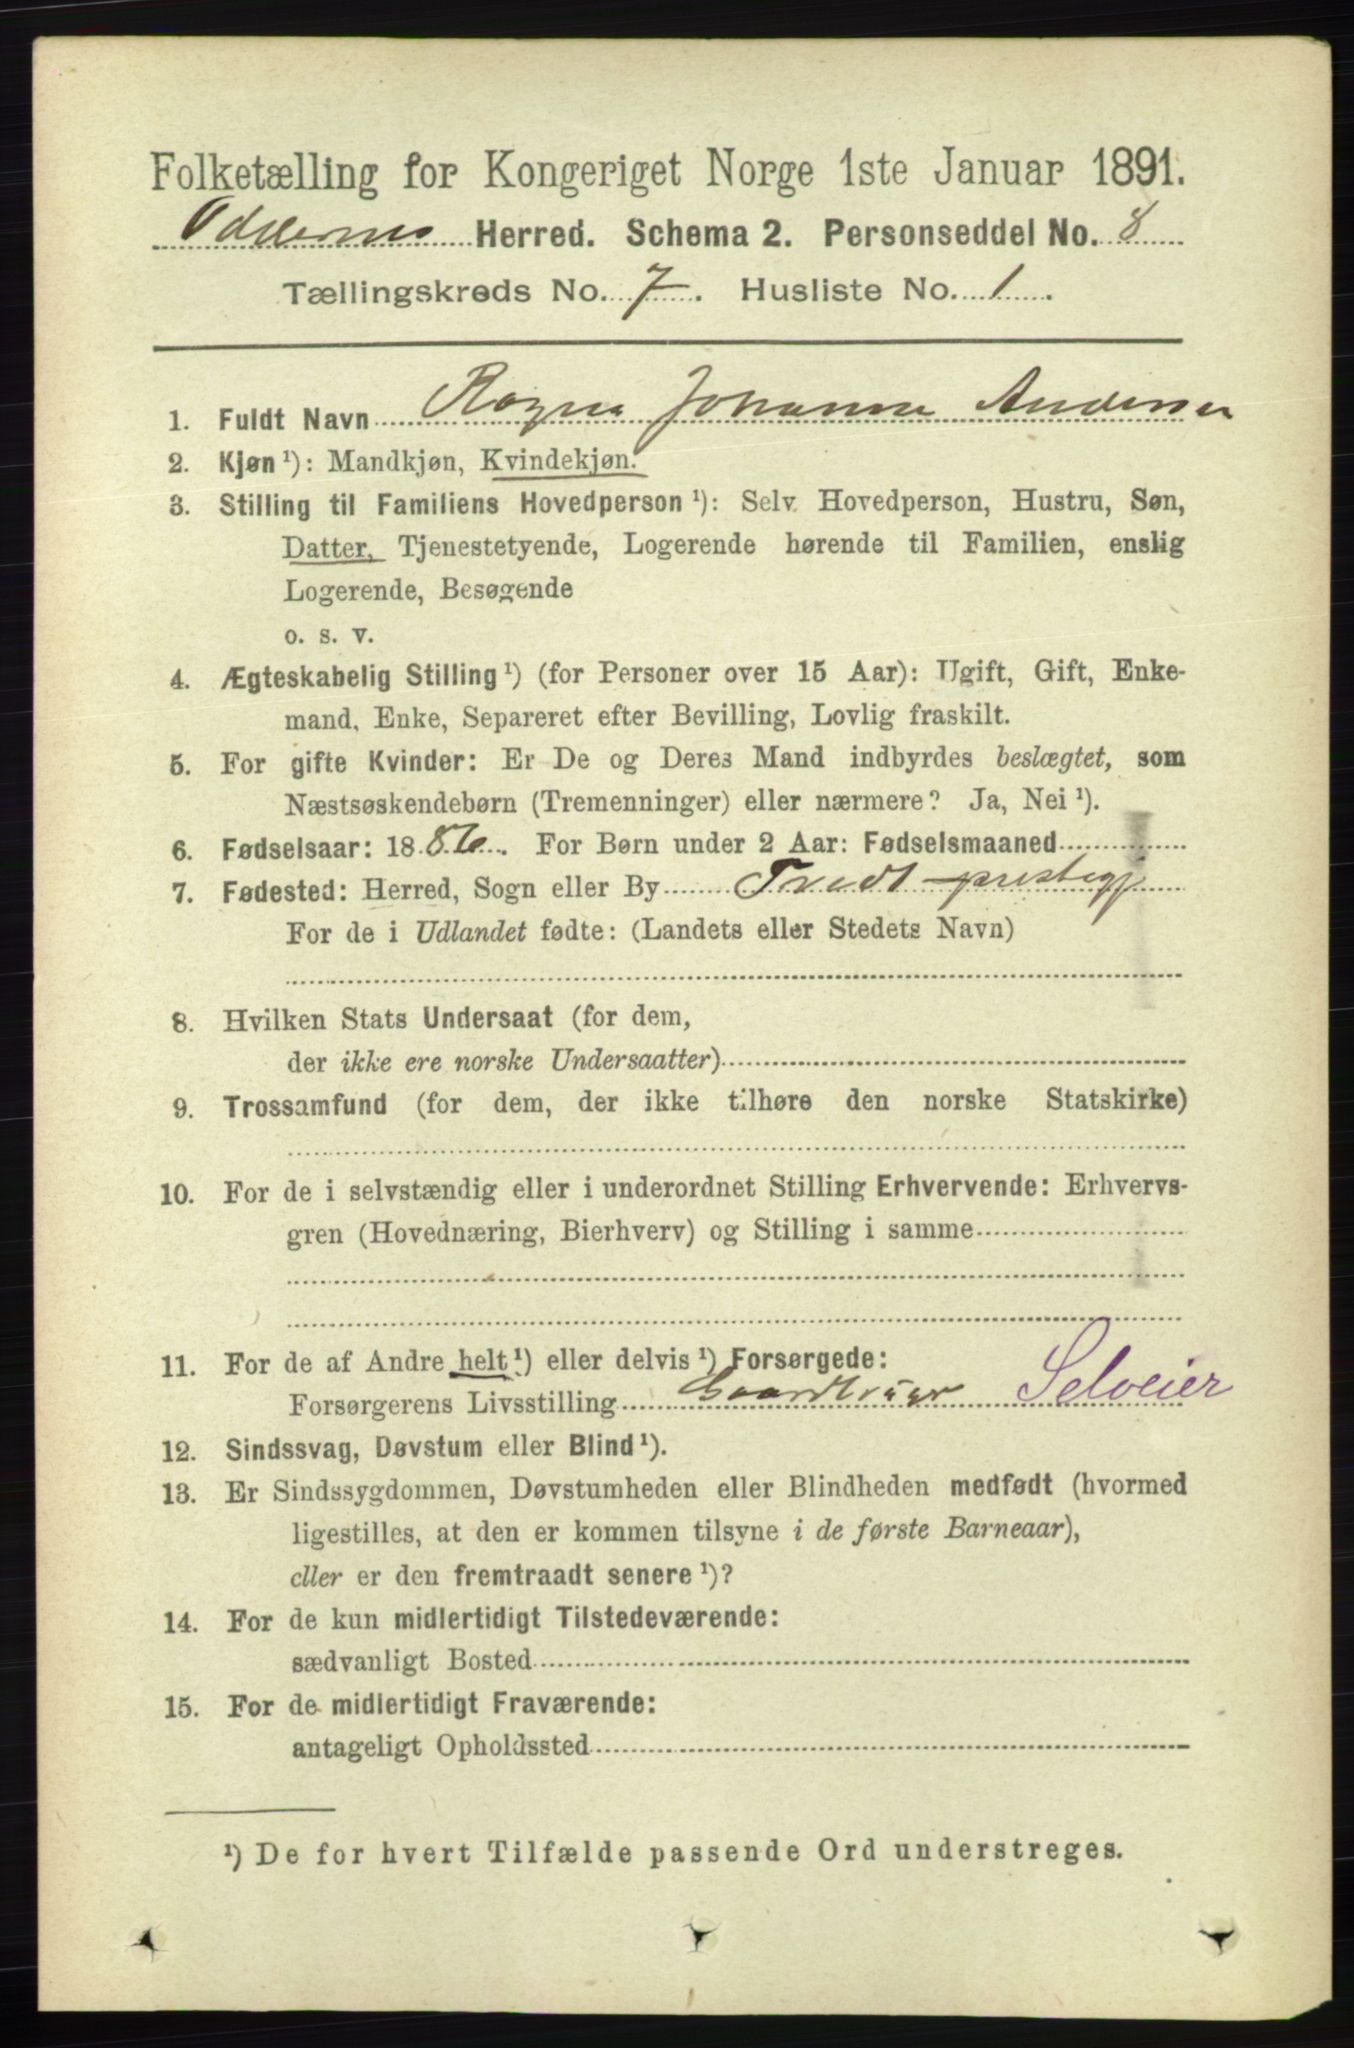 Folketælling for Kongeriget Norge 1ste Januar 1891.
Oddernes Herred. Schema 2. Personseddel No. 8
Tællingskreds No. 7. Husliste No. 1.
1. Fuldt Navn Ragna Johanna Andersen
2. Kjøn ¹): Mandkjøn, Kvindekjøn.
3. Stilling til Familiens Hovedperson ¹): Selv Hovedperson, Hustru, Søn,
Datter, Tjenestetyende, Logerende hørende til Familien, enslig
Logerende, Besøgende
o. s. v.
4. Ægteskabelig Stilling ¹) (for Personer over 15 Aar): Ugift, Gift, Enke-
mand, Enke, Separeret efter Bevilling, Lovlig fraskilt.
5. For gifte Kvinder: Er De og Deres Mand indbyrdes beslægtet, som
Næstsøskendebørn (Tremenninger) eller nærmere? Ja, Nei ¹).
6. Fødselsaar: 1886. For Børn under 2 Aar: Fødselsmaaned
7. Fødested: Herred, Sogn eller By Tvedt prestegj
For de i Udlandet fødte: (Landets eller Stedets Navn)
8. Hvilken Stats Undersaat (for dem,
der ikke ere norske Undersaatter)
9. Trossamfund (for dem, der ikke tilhøre den norske Statskirke)
10. For de i selvstændig eller i underordnet Stilling Erhvervende: Erhvervs-
gren (Hovednæring, Bierhverv) og Stilling i samme
11. For de af Andre helt ¹) eller delvis ¹) Forsørgede:
Forsørgerens Livsstilling Gaardbruger Selveier
12. Sindssvag, Døvstum eller Blind ¹).
13. Er Sindssygdommen, Døvstumheden eller Blindheden medfødt (hvormed
ligestilles, at den er kommen tilsyne i de første Barneaar),
eller er den fremtraadt senere ¹)?
14. For de kun midlertidigt Tilstedeværende:
sædvanligt Bosted
15. For de midlertidigt Fraværende:
antageligt Opholdssted
¹) De for hvert Tilfælde passende Ord understreges.